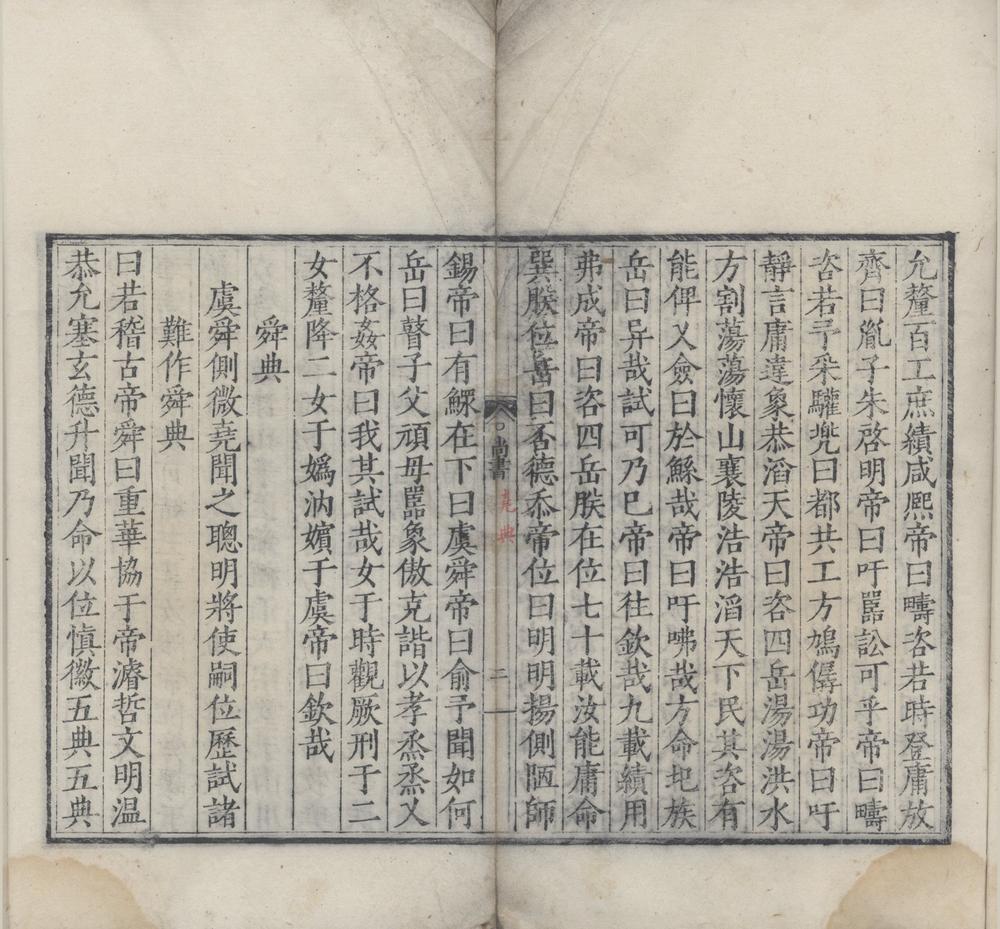 允釐百工庶績咸熙帝曰疇咨若時登庸放
齊曰胤子朱啓明帝曰吁嚚訟可乎帝曰疇
咨若予采驩兜曰都共工方鳩僝功帝曰吁
靜言庸違象恭滔天帝曰咨四岳湯湯洪水
方割蕩蕩懷山襄陵浩浩滔天下民其咨有
能俾乂僉曰於鯀哉帝曰吁咈哉方命圮族
岳曰异哉試可乃已帝曰往欽哉九載績用
弗成帝曰咨四岳朕在位七十載汝能庸命
巽朕位岳曰否德忝帝位曰明明揚側陋師
尚書
堯典
二
錫帝曰有鰥在下曰虞舜帝曰俞予聞如何
岳曰瞽子父頑母嚚象傲克諧以孝烝烝乂
不格姦帝曰我其試哉女于時觀厥刑于二
女釐降二女于嬀汭嬪于虞帝曰欽哉
舜典
虞舜側微堯聞之聰明將使嗣位歷試諸
難作舜典
曰若稽古帝舜曰重華協于帝濬哲文明溫
恭允塞玄德升聞乃命以位慎徽五典五典